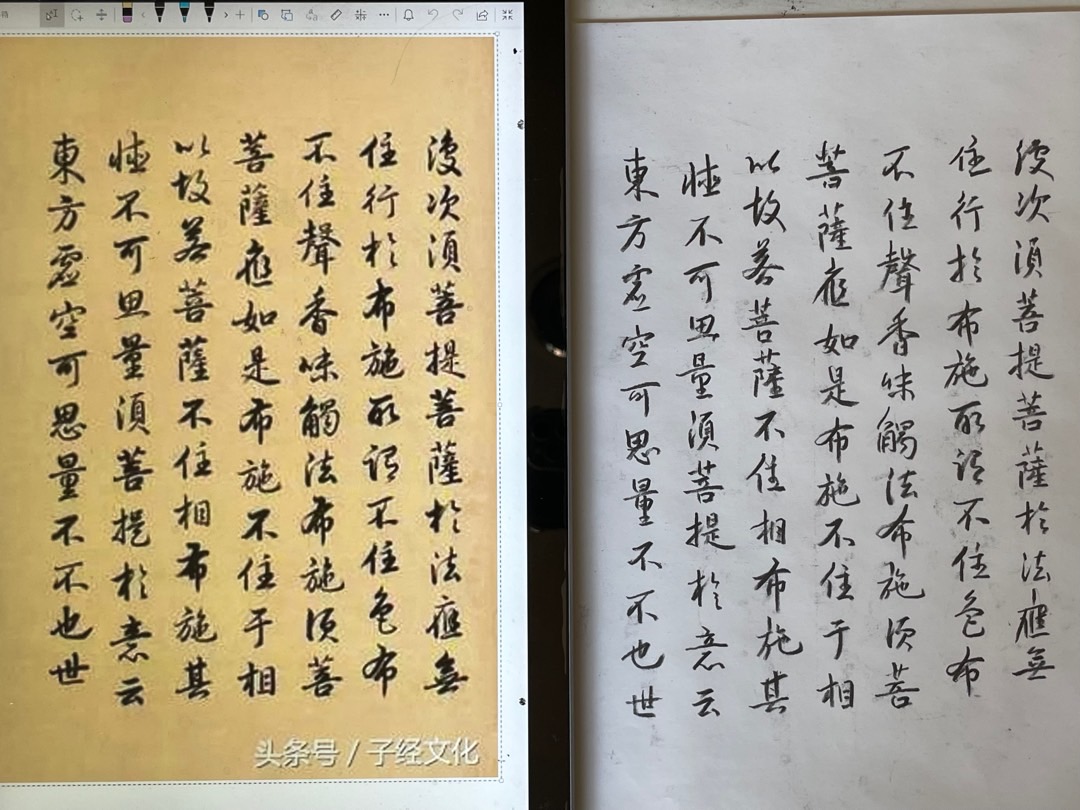 復次須菩提菩薩於法應無
住行於布施所謂不住色布
不住聲香味觸法布施須菩
菩薩應如是布施不住于相
以故若菩薩不住相布施其
德不可思量須菩提於意云
東方虛空可思量不不也世
头条号 / 子经文化
復次須菩提菩薩於法應無
住行於布施所謂不住色布
不住聲香味觸法布施須菩
菩薩應如是布施不住于相
以故若菩薩不住相布施其
德不可思量須菩提於意云
東方虛空可思量不不也世